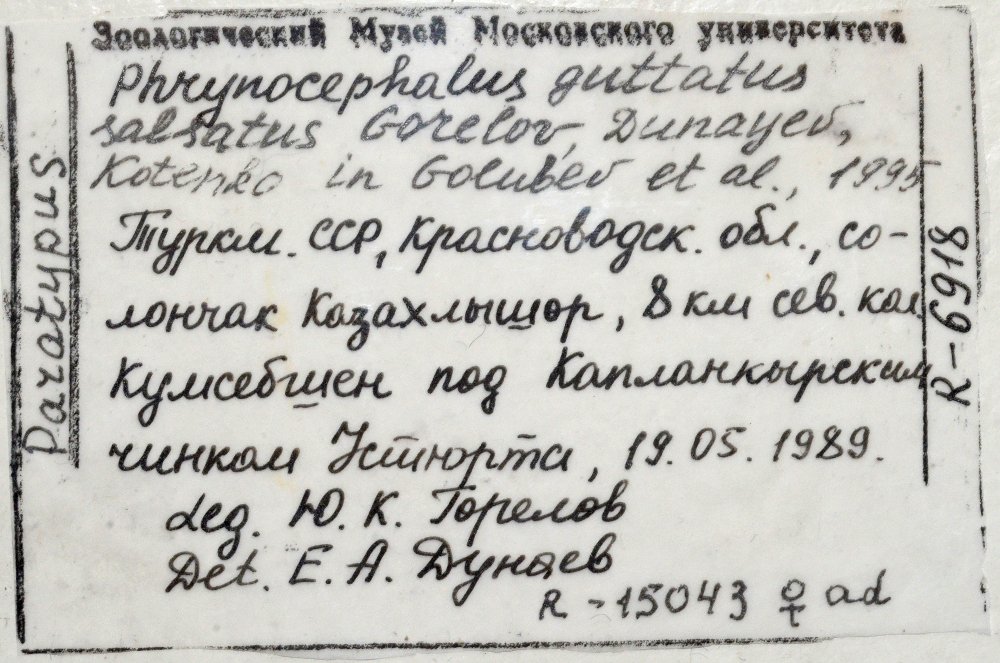 Зоологический Музей Московского университета
Phrynocephalus guttatus
salsatus Gorelov, Dunayev,
Kotenko in Golubev et al., 1995
Туркм. ССР, Красноводск. обл., со-
лончак Казахлышор, 8 км сев. кол.
Кумсебшен под Капланкырским
чинком Устюрта, 19.05.1989.
Leg. Ю. К. Горелов
Det. Е. А. Дунаев
R-15043 ♀ ad
Paratypus
R-6918